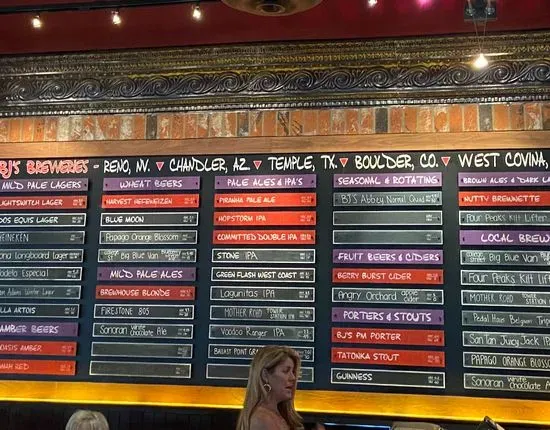 BJ'S BREWERIES - RENO, NV. CHANDLER, AZ. TEMPLE, TX. BOULDER, CO. WEST COVINA,
MILD PALE LAGERS
LIGHTSWITCH LAGER
DOS EQUIS LAGER
HEINEKEN
Longboard Lager
Modelo Especial
Adams Winter Lager
STELLA ARTOIS
AMBER BEERS
OASIS AMBER
RED
WHEAT BEERS
HARVEST HEFEWEIZEN
BLUE MOON
PAPAGO ORANGE BLOSSOM
Big Blue Van
MILD PALE ALES
BREWHOUSE BLONDE
FIRESTONE 805
Sonoran White Chocolate Ale
PALE ALES & IPA'S
PIRANHA PALE ALE
HOPSTORM IPA
COMMITTED DOUBLE IPA
STONE IPA
GREEN FLASH WEST COAST
Lagunitas IPA
MOTHER ROAD TOWER STATION IPA
Voodoo Ranger IPA
BALLAST POINT
SEASONAL & ROTATING
BJ'S Abbey Normal Quad
FRUIT BEERS & CIDERS
BERRY BURST CIDER
Angry Orchard
PORTERS & STOUTS
BJ'S PM PORTER
TATONKA STOUT
GUINNESS
BROWN ALES & DARK LA
NUTTY BREWNETTE
Four Peaks Kilt Lifter
LOCAL BREW
Big Blue Van
Four Peaks Kilt Lif
MOTHER ROAD
Pedal Haus Belgian
SanTan Juicy Jack IP
PAPAGO ORANGE BLOSSO
Sonoran White Chocolate A